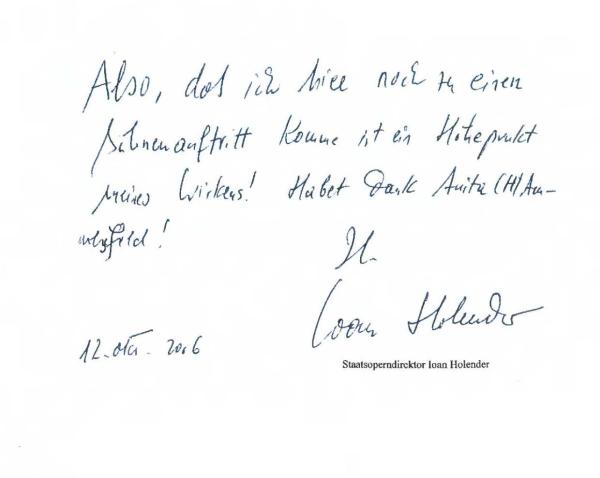 Also, daß ich hier noch zu einen
Bühnenauftritt komme ist ein Höhepunkt
meines Wirkens! Habet Dank Anita (H)Am-
!
Ioan Holender
12. Okt. 2006
Staatsoperndirektor Ioan Holender